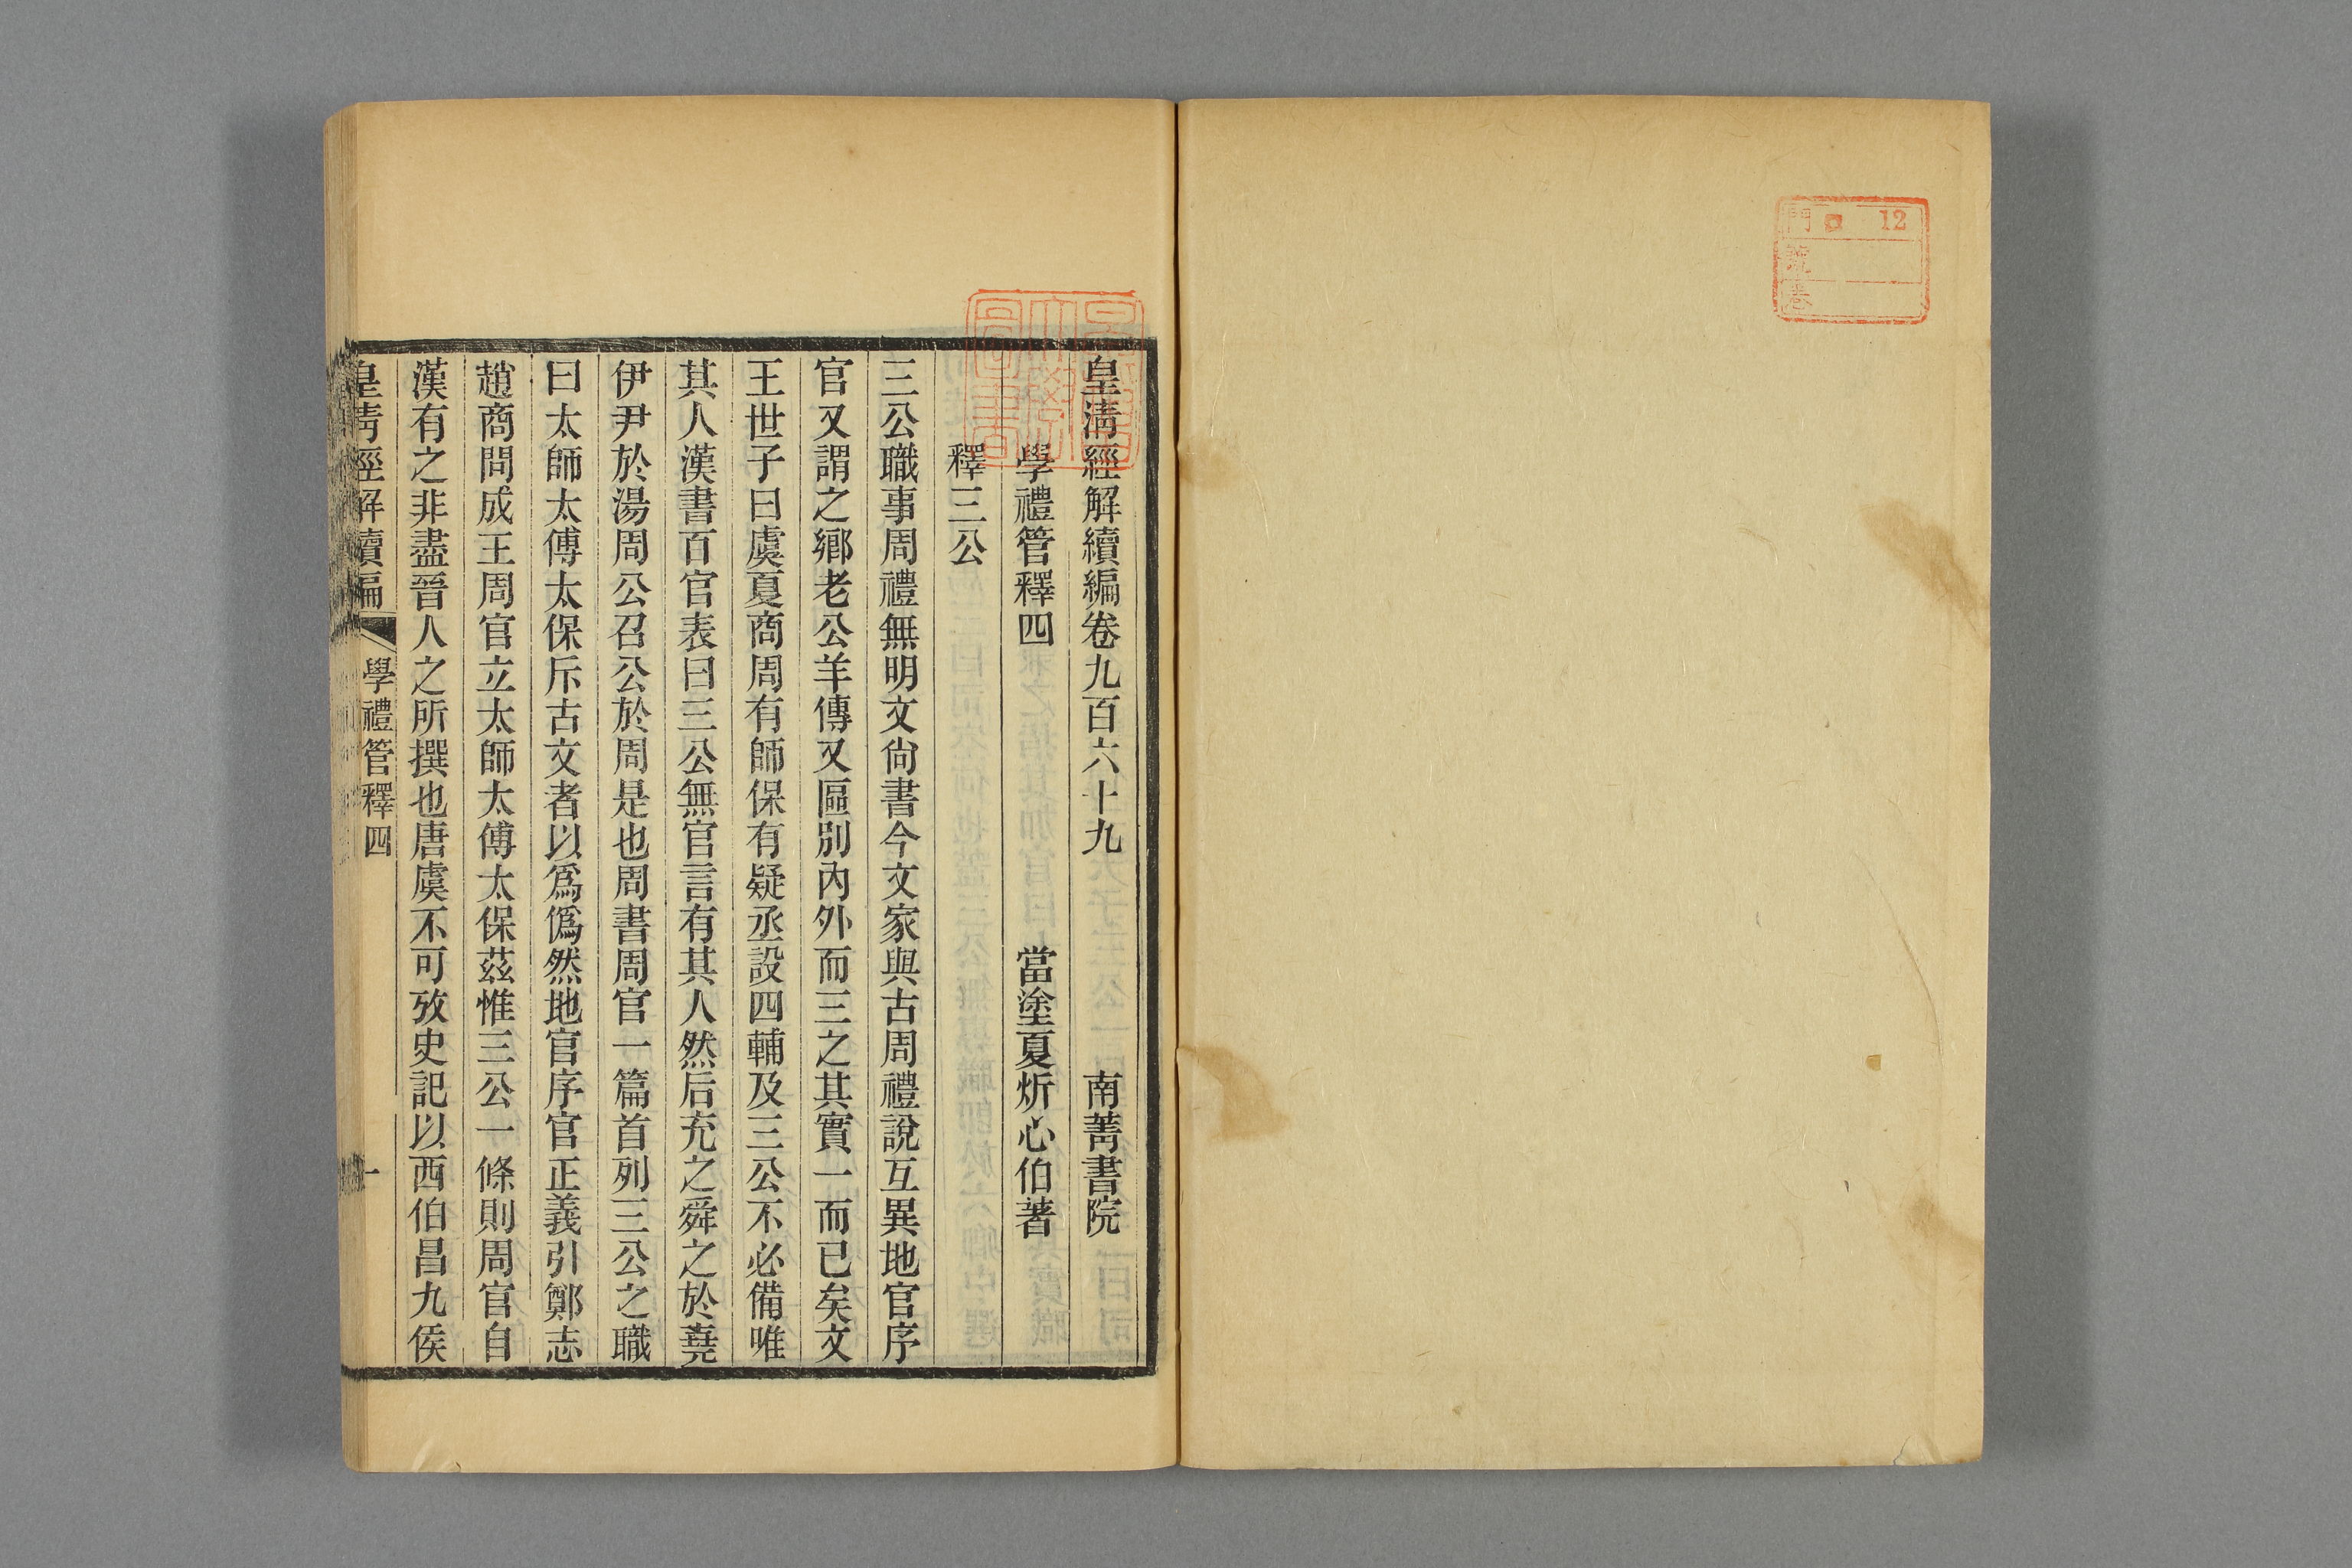 門 12
號
卷
皇清經解續編卷九百六十九 南菁書院
學禮管釋四 當塗夏炘心伯著
釋三公
三公職事周禮無明文尙書今文家與古周禮說互異地官序
官又謂之鄕老公羊傳又區別內外而三之其實一而已矣文
王世子曰虞夏商周有師保有疑丞設四輔及三公不必備唯
其人漢書百官表曰三公無官言有其人然后充之舜之於堯
伊尹於湯周公召公於周是也周書周官一篇首列三公之職
曰太師太傅太保斥古文者以爲僞然地官序官正義引鄭志
趙商問成王周官立太師太傅太保茲惟三公一條則周官自
漢有之非盡晉人之所撰也唐虞不可攷史記以西伯昌九侯
皇清經解續編 學禮管釋四 一